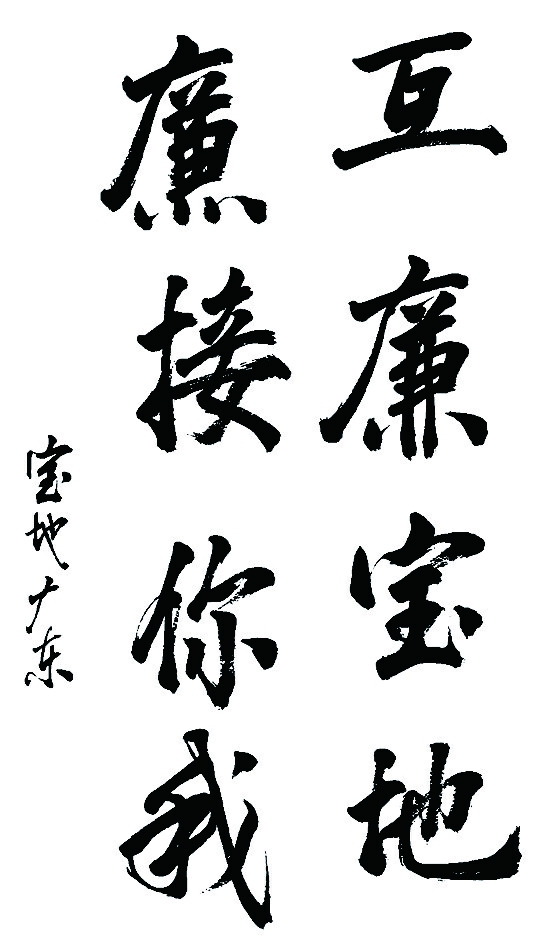 互廉宝地
廉接你我
宝地广东